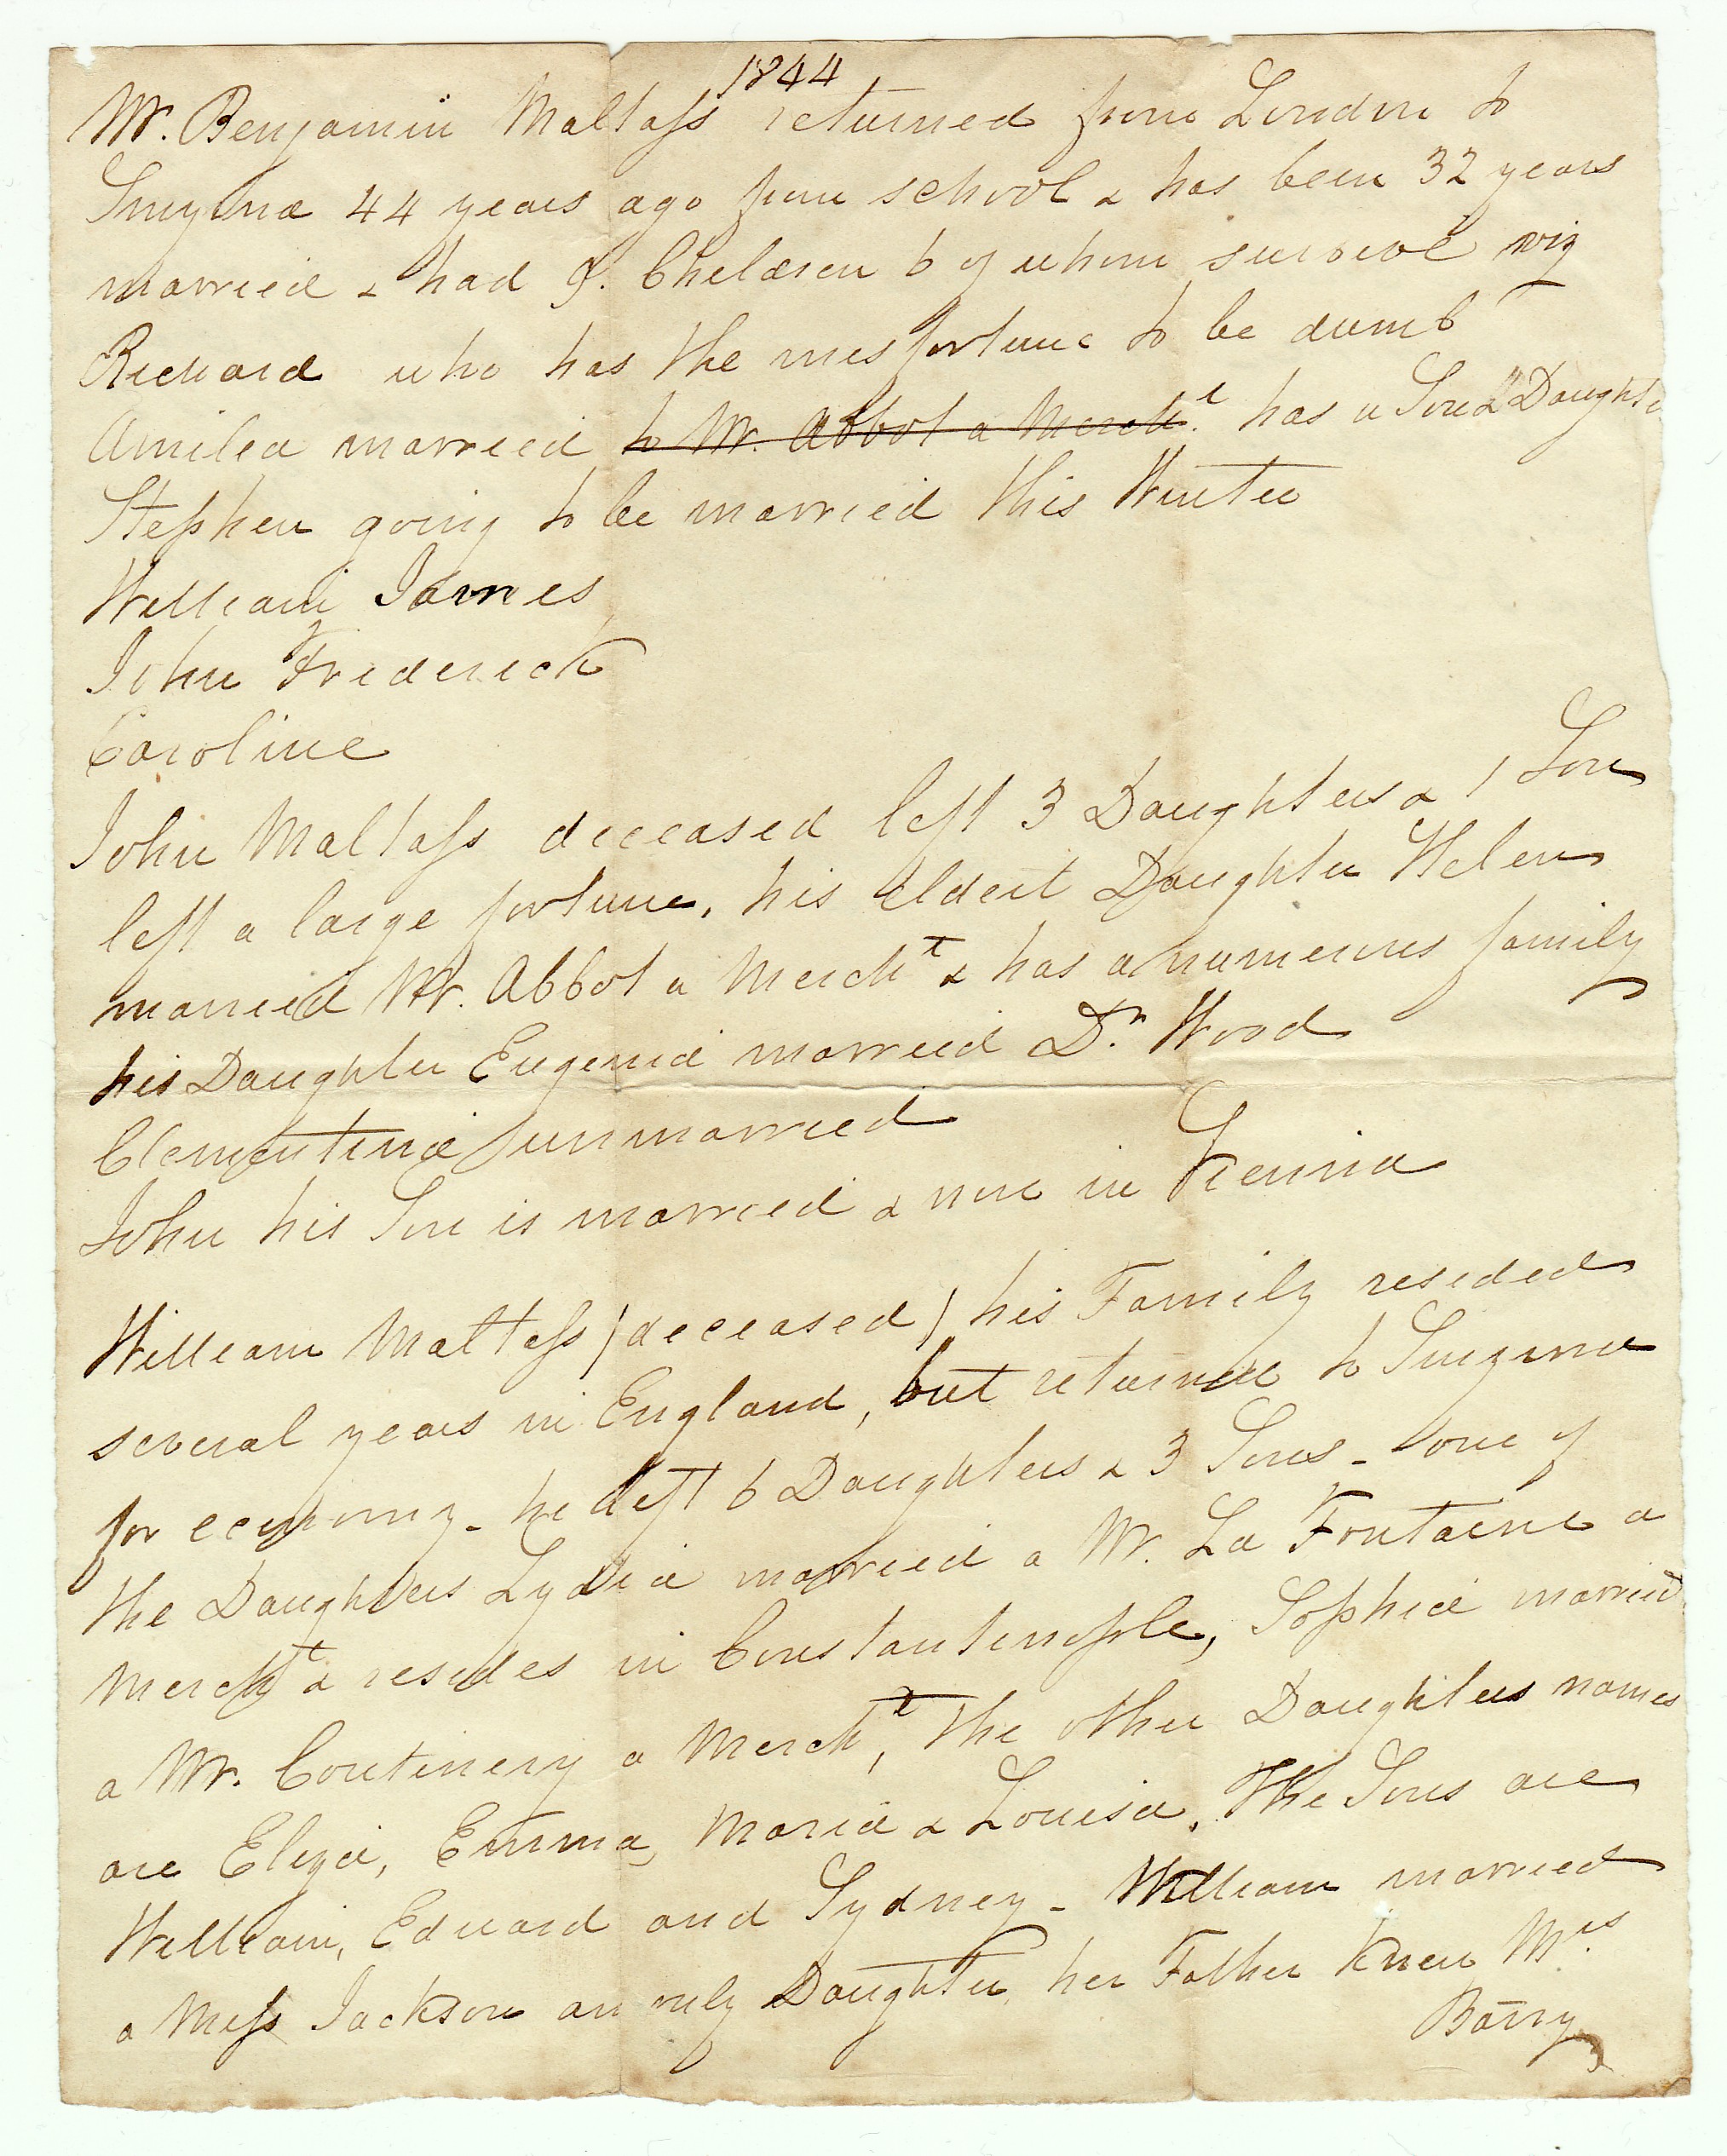 1844
Mr. Benjamin Maltass returned from London to
Smyrna 44 years ago from school & has been 32 years
married & had 9. Children 6 of whom survive viz
Richard who has the misfortune to be dumb
Amilea married to Mr. Abbot a Mercht. has a Son & Daughter
Stephen going to be married this Winter
William James
John Frederick
Caroline
John Maltass deceased left 3 Daughters & 1 Son
left a large fortune, his eldest Daughter Helen
married Mr. Abbot a Mercht & has a numerous family
his Daughter Eugenia married Dr. Wood
Clementina unmarried
John his Son is married & now in Vienna
William Maltass (deceased) his Family resided
several years in England, but returned to Smyrna
for economy - he left 6 Daughters & 3 Sons - one of
the Daughters Lydia married a Mr. La Fontaine a
Mercht & resides in Constantinople, Sophia married
a Mr. a Mercht, the other Daughters names
are Eliza, Emma, Maria & Louisa. The Sons are
William, Edward and Sydney - William married
a Miss Jackson an only Daughter her Father knew Mrs.
Barry